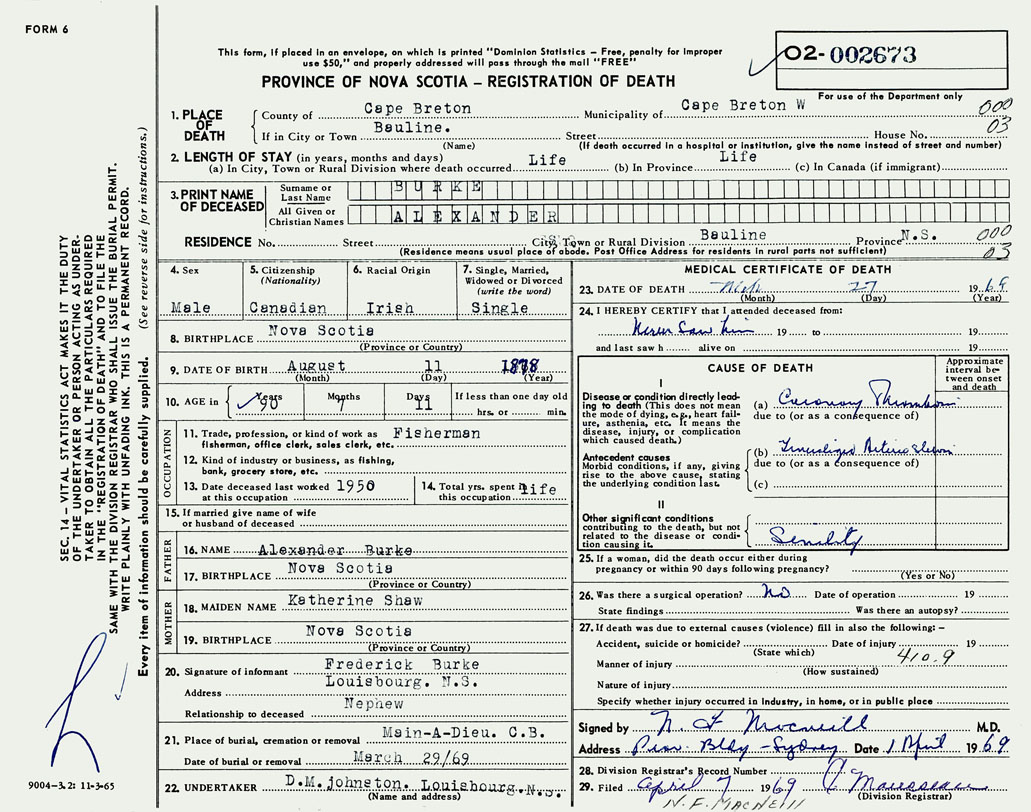 FORM 6
This form, if placed in an envelope, on which is printed "Dominion Statistics — Free, penalty for improper
use $50," and properly addressed will pass through the mail "FREE"
02-002673
For use of the Department only
PROVINCE OF NOVA SCOTIA — REGISTRATION OF DEATH
1. PLACE OF DEATH
County of Cape Breton Municipality of Cape Breton W 000
If in City or Town Bauline. Street House No. 03
(Name) (If death occurred in a hospital or institution, give the name instead of street and number)
2. LENGTH OF STAY (in years, months and days)
(a) In City, Town or Rural Division where death occurred Life (b) In Province Life (c) In Canada (if immigrant)
3. PRINT NAME OF DECEASED
Surname or Last Name BURKE
All Given or Christian Names ALEXANDER
RESIDENCE No. Street City, Town or Rural Division Bauline Province N.S. 000
(Residence means usual place of abode. Post Office Address for residents in rural parts not sufficient) 03
4. Sex
Male
5. Citizenship
(Nationality)
Canadian
6. Racial Origin
Irish
7. Single, Married,
Widowed or Divorced
(write the word)
Single
8. BIRTHPLACE Nova Scotia
(Province or Country)
9. DATE OF BIRTH August 11 1878
(Month) (Day) (Year)
10. AGE in Years Months Days If less than one day old
90 7 11 hrs. or min.
OCCUPATION
11. Trade, profession, or kind of work as Fisherman
fisherman, office clerk, sales clerk, etc.
12. Kind of industry or business, as fishing,
bank, grocery store, etc.
13. Date deceased last worked 1950
at this occupation
14. Total yrs. spent in
this occupation life
15. If married give name of wife
or husband of deceased
FATHER
16. NAME Alexander Burke
17. BIRTHPLACE Nova Scotia
(Province or Country)
MOTHER
18. MAIDEN NAME Katherine Shaw
19. BIRTHPLACE Nova Scotia
(Province or Country)
20. Signature of informant Frederick Burke
Address Louisbourg. N.S.
Relationship to deceased Nephew
21. Place of burial, cremation or removal Main-A-Dieu. C.B.
Date of burial or removal March 29/69
22. UNDERTAKER D.M.johnston. Louisbourg.N.S.
(Name and address)
MEDICAL CERTIFICATE OF DEATH
23. DATE OF DEATH 27 1969
(Month) (Day) (Year)
24. I HEREBY CERTIFY that I attended deceased from:
Never Saw him 19 to 19
and last saw h alive on 19
CAUSE OF DEATH
Approximate
interval be-
tween onset
and death
I
Disease or condition directly lead-
ing to death (This does not mean
the mode of dying, e.g., heart fail-
ure, asthenia, etc. It means the
disease, injury, or complication
which caused death.)
(a) Coronary Thrombosis
due to (or as a consequence of)
Antecedent causes
Morbid conditions, if any, giving
rise to the above cause, stating
the underlying condition last.
(b) Generalized Arteriosclerosis
due to (or as a consequence of)
(c)
II
Other significant conditions
contributing to the death, but not
related to the disease or condi-
tion causing it.
Senility
25. If a woman, did the death occur either during
pregnancy or within 90 days following pregnancy?
(Yes or No)
26. Was there a surgical operation? No Date of operation 19
State findings Was there an autopsy?
27. If death was due to external causes (violence) fill in also the following: —
Accident, suicide or homicide? Date of injury 19
(State which) 410.9
Manner of injury
(How sustained)
Nature of injury
Specify whether injury occurred in Industry, in home, or in public place
Signed by N. F Macneill M.D.
Address Prov. Bldg - Sydney Date 1 April 1969
28. Division Registrar's Record Number
29. Filed April 7 1969
(Division Registrar)
N.F. MACNEILL
SEC. 14 — VITAL STATISTICS ACT MAKES IT THE DUTY
OF THE UNDERTAKER OR PERSON ACTING AS UNDER-
TAKER TO OBTAIN ALL THE PARTICULARS REQUIRED
IN THE "REGISTRATION OF DEATH" AND TO FILE THE
SAME WITH THE DIVISION REGISTRAR WHO SHALL ISSUE THE BURIAL PERMIT.
WRITE PLAINLY WITH UNFADING INK. THIS IS A PERMANENT RECORD.
Every item of information should be carefully supplied. (See reverse side for instructions.)
9004-3.2: 11-3-65